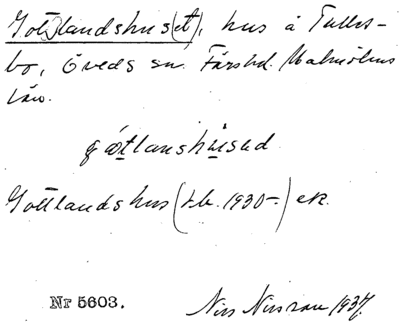 Got(t)landshus(et), hus å Tulles-
bo, Öveds sn. Färs hd. Malmöhus
län.
gåtlanshusəd
Gottlandshus (t.b. 1930-) ek.
Nr 5603. Nils Nilsson 1937.